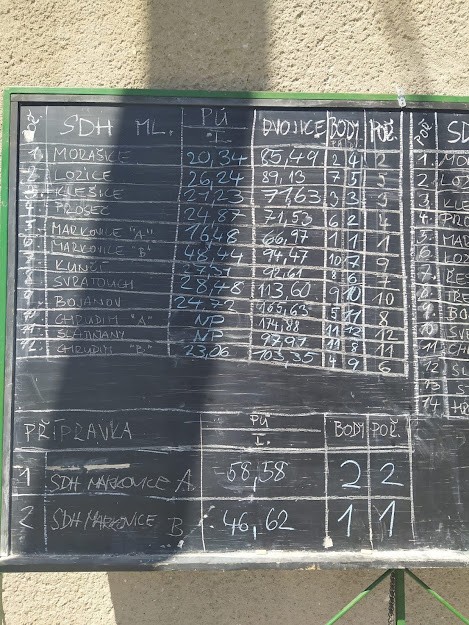 Č. SDH ML. PÚ I. DVOJICE BODY POŘ. POŘ. SD
1. MORAŠICE 20,34 85,49 2 4 2 1. MO
2. LOZICE 26,24 89,13 7 5 5 2. LOZ
3. KLEŠICE 21,23 71,63 3 3 3 3. KLE
4. PROSEČ 24,87 71,53 6 2 4 4. PRO
5. MARKOVICE "A" 16,48 66,97 1 1 1 5. MAR
6. MARKOVICE "B" 48,44 94,47 10 7 9 6. LOZ
7. KUNČÍ 27,37 92,61 8 6 7 7.
8. SVRATOUCH 28,48 113,60 9 10 10 8.
9. BOJANOV 24,72 165,63 5 11 8 9. BO
10. CHRUDIM "A" NP 174,88 11 12 12 10. SV
11. SLATIŇANY NP 97,97 11 8 11 11. CH
12. CHRUDIM "B" 23,06 103,35 4 9 6 12
13
14
PŘÍPRAVKA PÚ I. BODY POŘ.
1 SDH MARKOVICE A 58,58 2 2
2 SDH MARKOVICE B 46,62 1 1